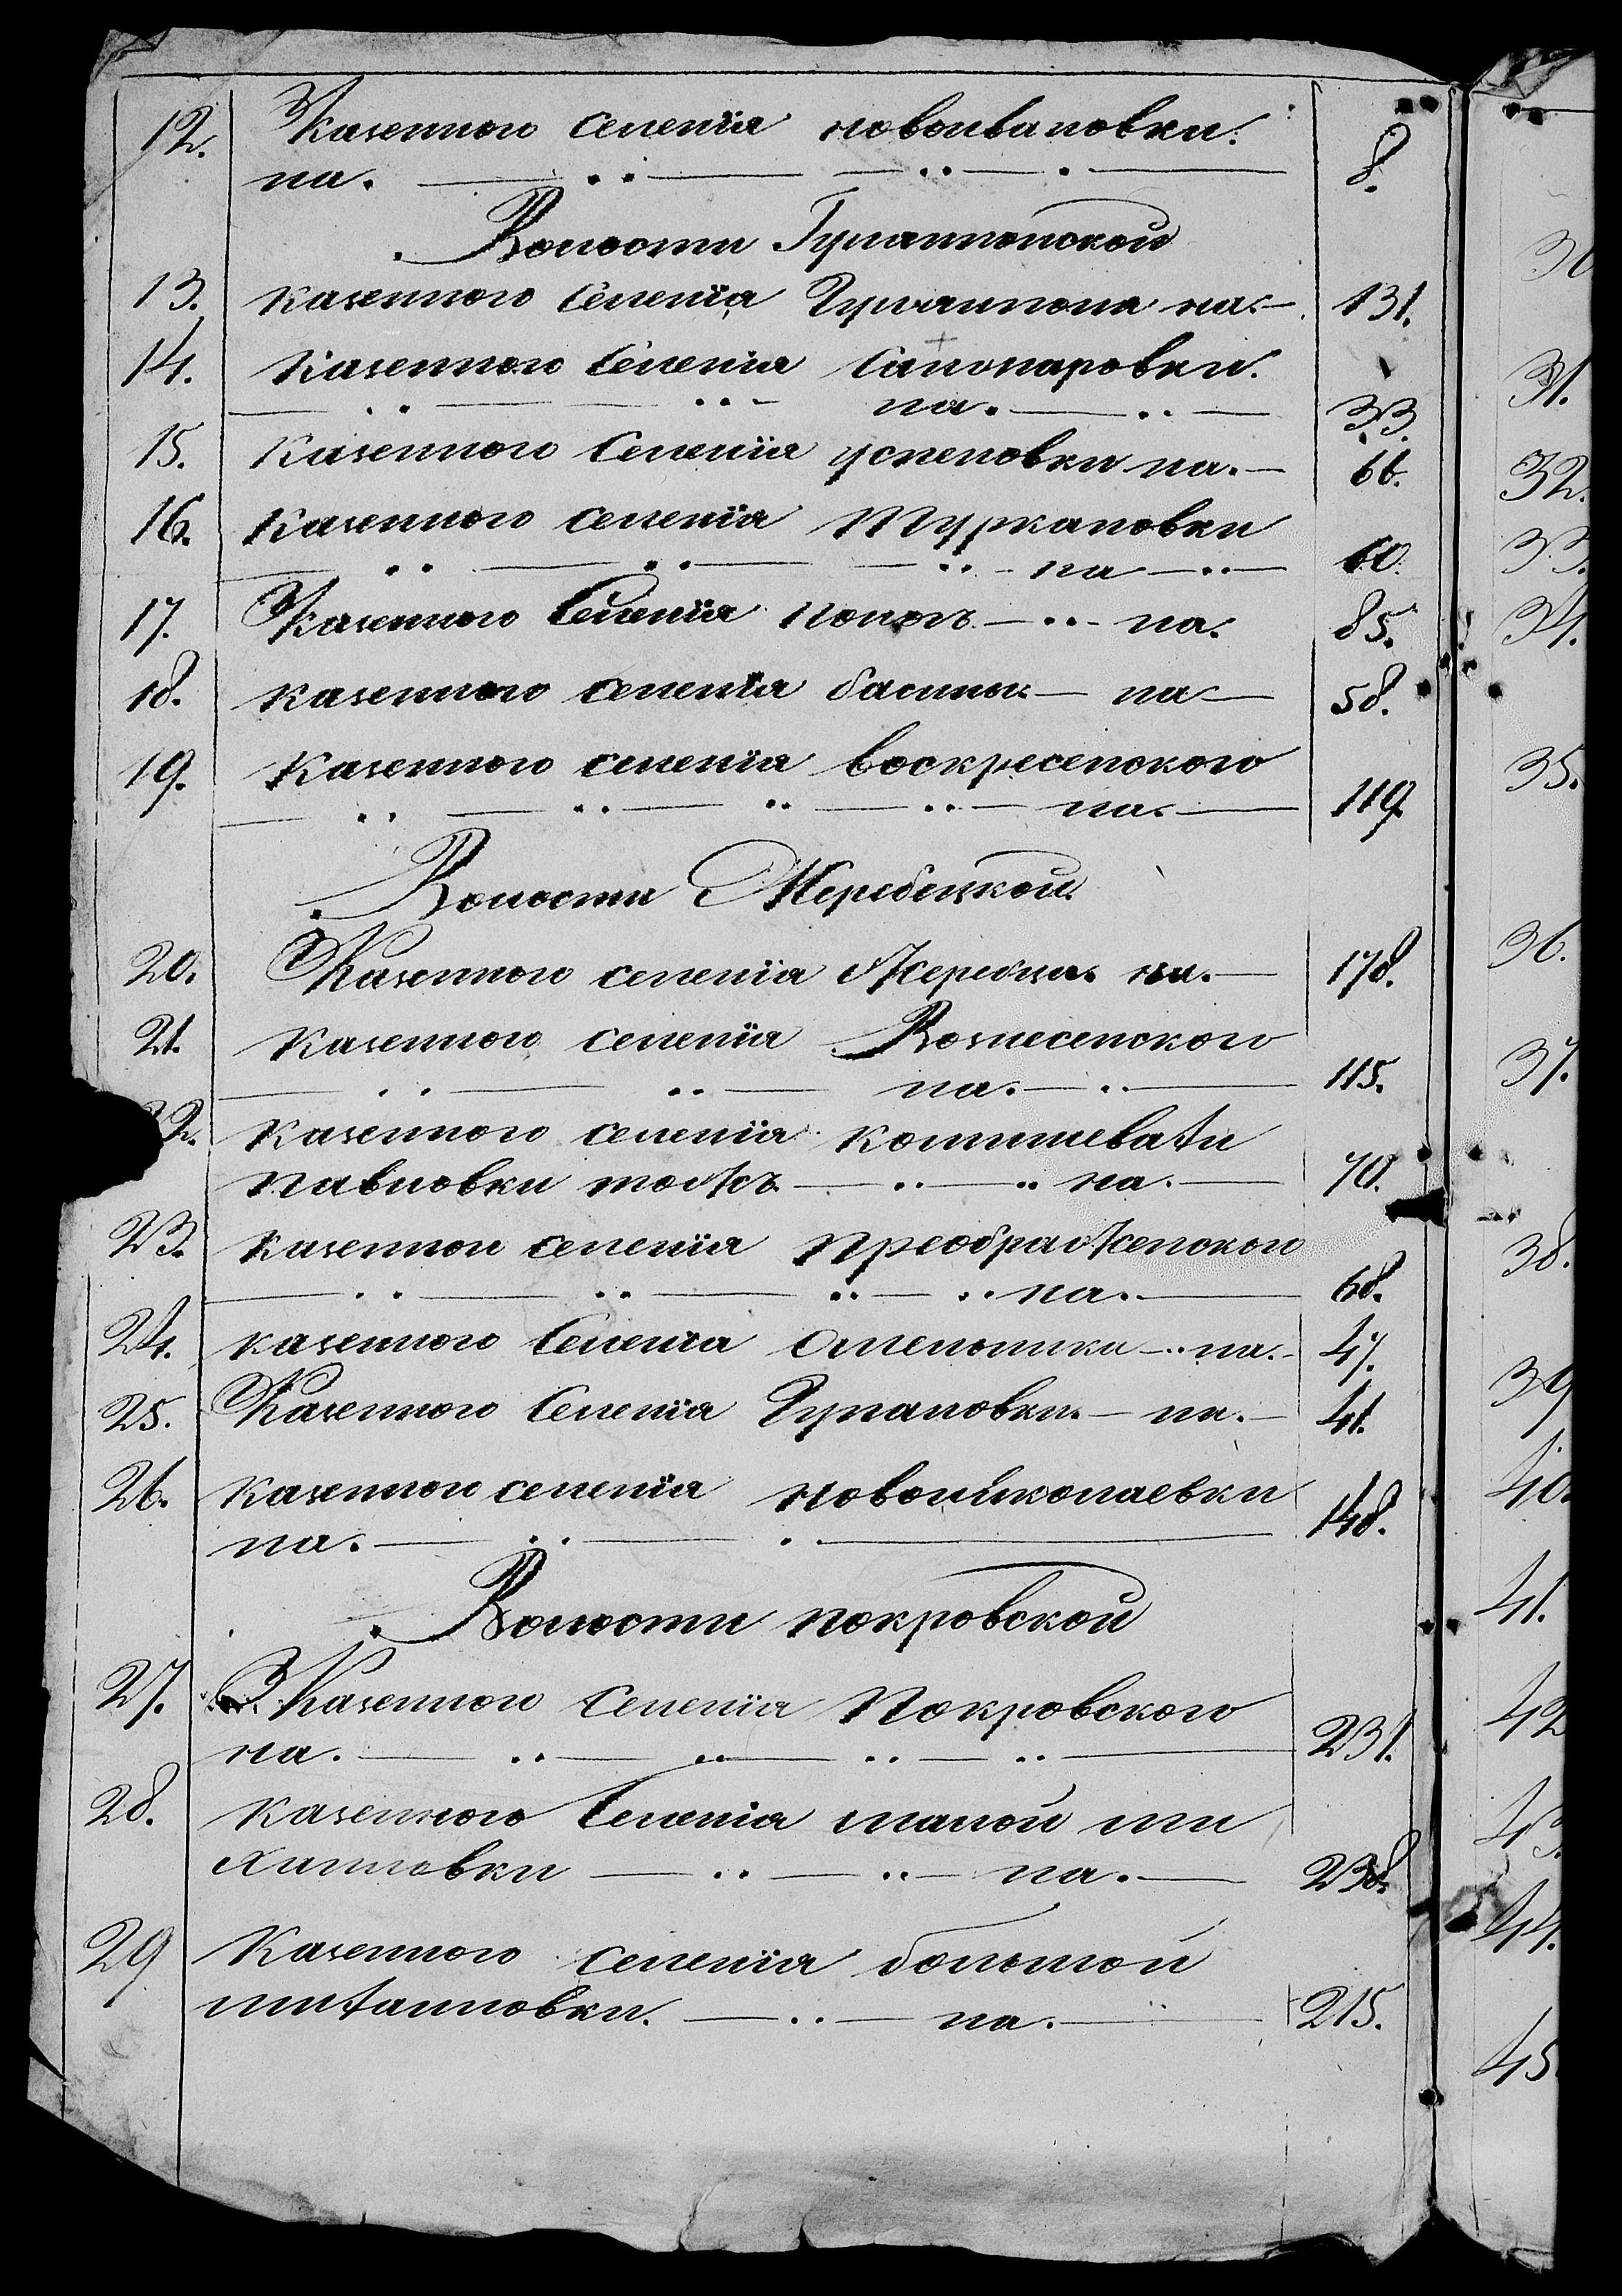 12. Казенного Селенія новоивановки.
на. 8.
Волости Гуляипольской
13. казенного Селенія Гуляиполя на. 131.
14. Казенного Селенія
на. 33.
15. Казенного Селенія успеновки на. 66.
16. Казенного селенія Туркановки
на 60.
17. Казенного Селенія пологъ на. 85.
18. казенного селенія басань на 58.
19. Казенного селенія воскресенского
на. 119.
Волости Жеребецкой
20. Казенного селенія Жеребца на. 178.
21. Казенного селенія Вознесенского
на. 115.
22. Казенного селенія комишеватхи
павловки тожъ на. 70.
23. Казенного селенія преображенского
на. 68.
24. казенного Селенія оленопика на. 47.
25. Казенного Селенія на. 41.
26. Казенного селенія новониколаевки
на. 148.
Волости покровской
27. Казенного Селенія Покровского
на. 231.
28. Казенного Селенія малой ми
хайловки на. 238.
29 Казенного селенія большой
михайловки. на. 215.
30
31.
32.
33.
34.
35.
36.
37.
38.
39
40.
41.
42
43.
44.
45